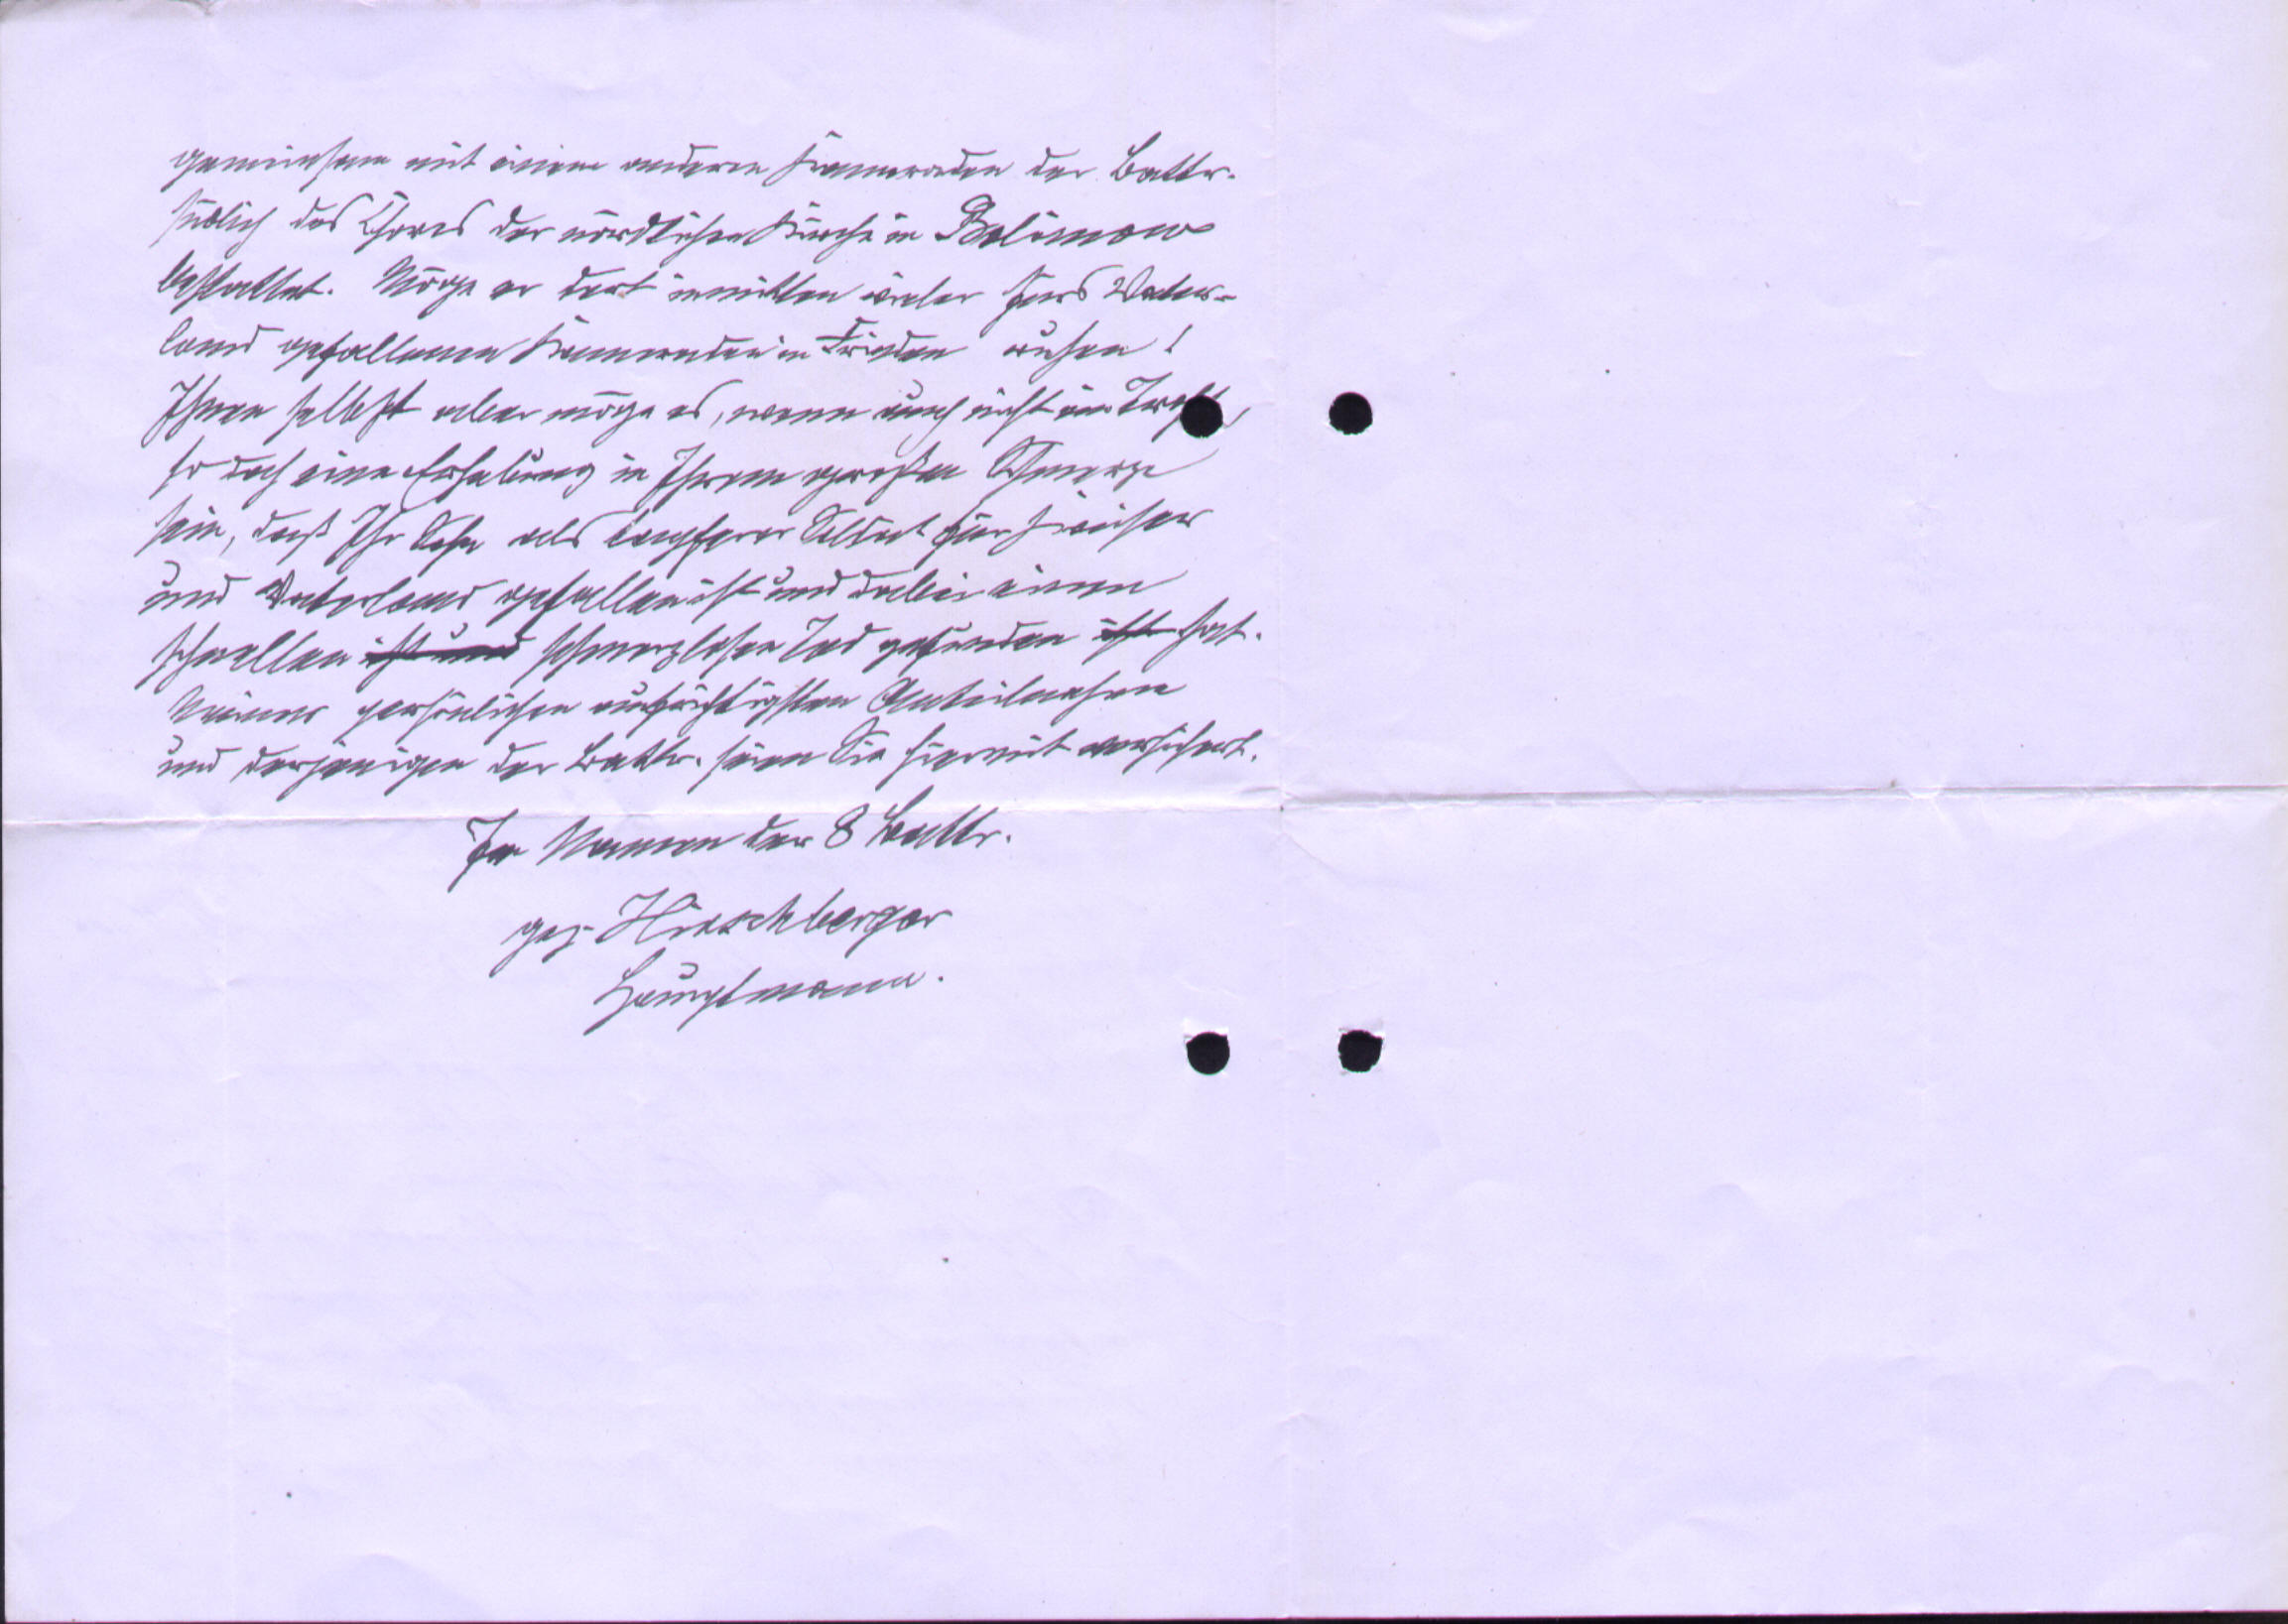 gemeinsam mit einem anderen Kameraden der Battr.
südlich des Chores der nördlichen Kirche in Bolimow
bestattet. Möge er dort inmitten vieler fürs Vater-
land gefallenen Kameraden in Frieden ruhen!
Ihnen selbst aber möge es, wenn auch nicht ein Trost,
so doch eine Erhebung in Ihrem großen Schmerze
sein, daß Ihr Sohn als tapferer Soldat für Kaiser
und Vaterland gefallen ist und dabei einen
schnellen ist und schmerzlosen Tod gefunden ist hat.
Meiner persönlichen aufrichtigsten Anteilnahme
und derjenigen der Battr. seien Sie hiermit versichert.
Im Namen der 8 Battr.
gez. Hirschberger
Hauptmann.